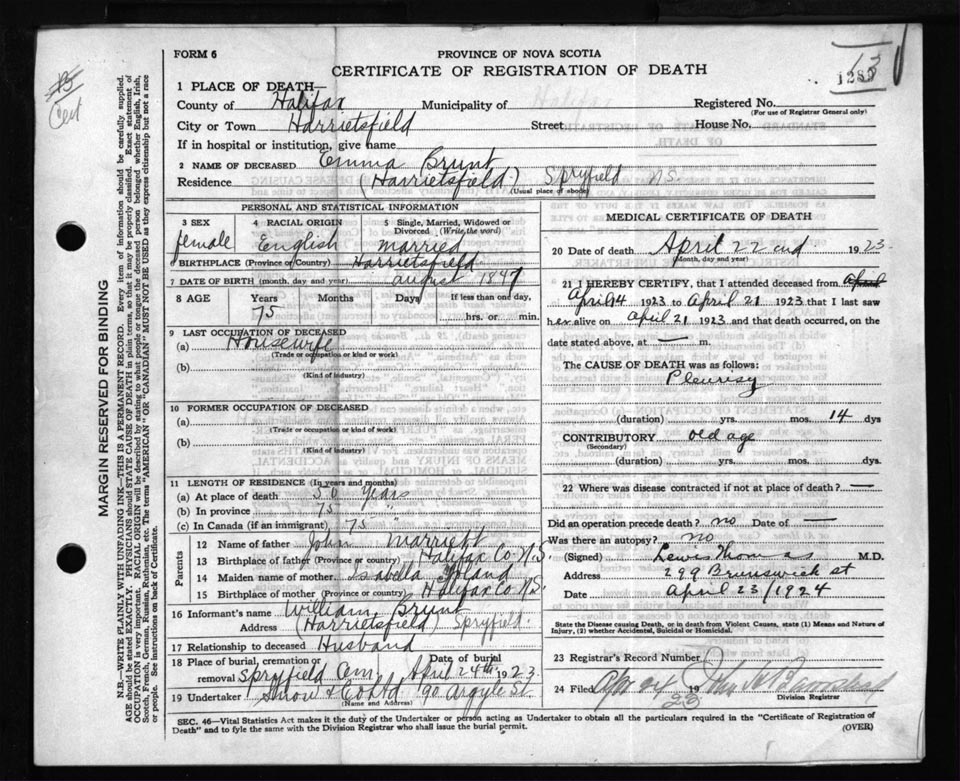 FORM 6
PROVINCE OF NOVA SCOTIA
CERTIFICATE OF REGISTRATION OF DEATH
1285
13
Cert
1 PLACE OF DEATH—
County of Halifax Municipality of Registered No.
(For use of Registrar General only)
City or Town Harrietsfield Street House No.
If in hospital or institution, give name
2 NAME OF DECEASED Emma Brunt
Residence (Harrietsfield) Spryfield N.S.
(Usual place of abode)
PERSONAL AND STATISTICAL INFORMATION
3 SEX 4 RACIAL ORIGIN 5 Single, Married, Widowed or Divorced (Write the word)
female English married
BIRTHPLACE (Province or Country) Harrietsfield
7 DATE OF BIRTH (month, day and year) august 1847
8 AGE Years Months Days If less than one day,
75 hrs. or min.
9 LAST OCCUPATION OF DECEASED
(a) Housewife
(Trade or occupation or kind of work)
(b)
(Kind of industry)
10 FORMER OCCUPATION OF DECEASED
(a)
(Trade or occupation or kind of work)
(b)
(Kind of industry)
11 LENGTH OF RESIDENCE (In years and months)
(a) At place of death 50 years
(b) In province 75 "
(c) In Canada (if an immigrant) 75 "
Parents
12 Name of father John Marriett
13 Birthplace of father (Province or country) Halifax Co N.S.
14 Maiden name of mother Isabella
15 Birthplace of mother (Province or country) Halifax Co N.S.
16 Informant's name William Brunt
Address (Harrietsfield) Spryfield.
17 Relationship to deceased Husband
18 Place of burial, cremation or removal Spryfield Cem Date of burial April 24th 1923
19 Undertaker Snow & Co Ltd 90 Argyle St.
(Name and Address)
MEDICAL CERTIFICATE OF DEATH
20 Date of death April 22 nd 1923
(Month, day and year)
21 I HEREBY CERTIFY, that I attended deceased from April
April 14 1923 to April 21 1923 that I last saw
her alive on April 21 1923 and that death occurred, on the
date stated above, at — m.
The CAUSE OF DEATH was as follows:
Pleurisy
(duration) yrs. mos. 14 dys
CONTRIBUTORY old age
(Secondary)
(duration) yrs. mos. dys.
22 Where was disease contracted if not at place of death? —
Did an operation precede death? no Date of —
Was there an autopsy? no
(Signed) Lewis Thomas M.D.
Address 299 Brunswick st
Date April 23/1924
State the Disease causing Death, or in death from Violent Causes, state (1) Means and Nature of Injury, (2) whether Accidental, Suicidal or Homicidal.
23 Registrar's Record Number
24 Filed Apr 24 1923 John
Division Registrar
SEC. 46—Vital Statistics Act makes it the duty of the Undertaker or person acting as Undertaker to obtain all the particulars required in the "Certificate of Registration of
Death" and to fyle the same with the Division Registrar who shall issue the burial permit.
(OVER)
MARGIN RESERVED FOR BINDING
N.B.—WRITE PLAINLY WITH UNFADING INK—THIS IS A PERMANENT RECORD. Every item of information should be carefully supplied.
AGE should be stated EXACTLY. PHYSICIANS should STATE CAUSE OF DEATH in plain terms, so that it may be properly classified. Exact statement of
OCCUPATION is very important. RACIAL ORIGIN will be described by stating to what people or tongue the deceased person belonged whether English, Irish,
Scotch, French, German, Russian, Ruthenian, etc. The terms "AMERICAN" OR "CANADIAN" MUST NOT BE USED as they express citizenship but not a race
or people. See instructions on back of Certificate.